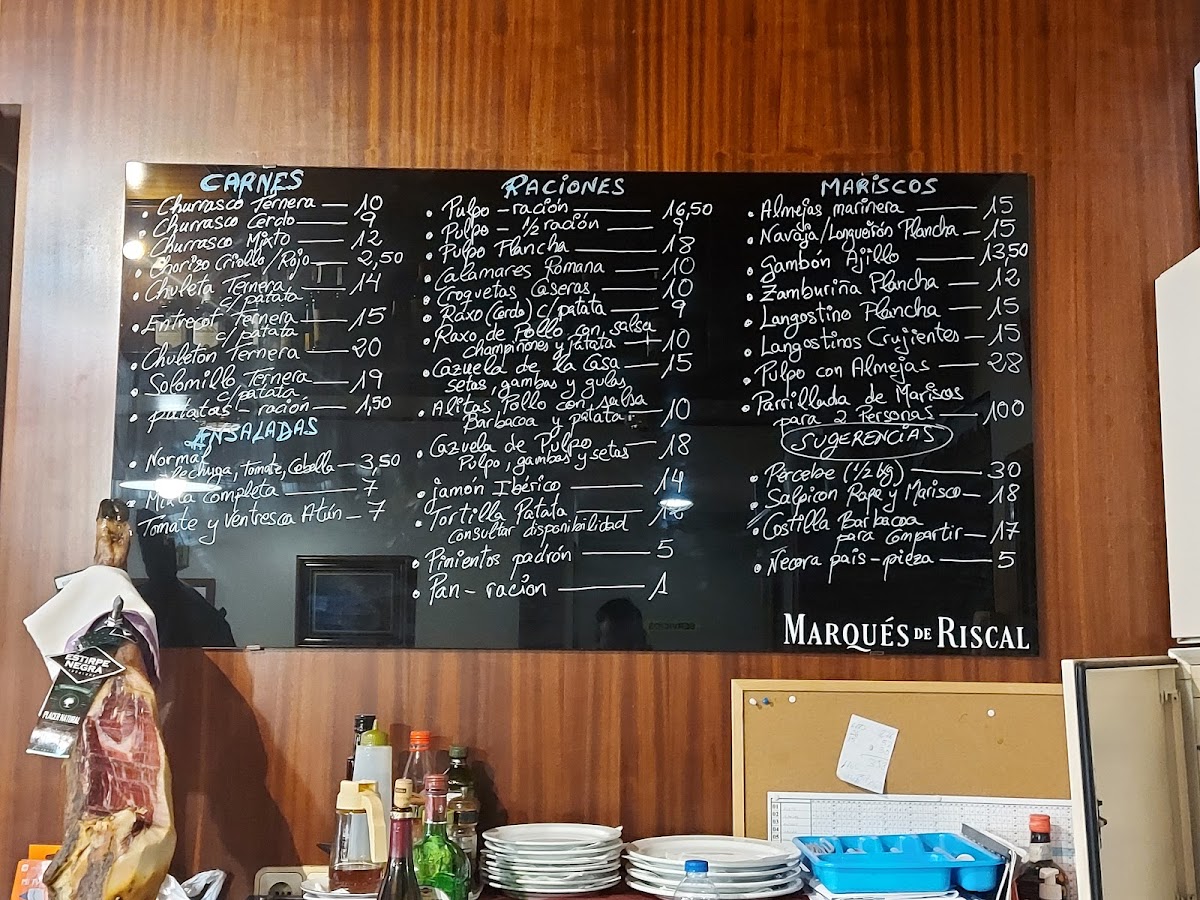 CARNES
• Churrasco Ternera — 10
• Churrasco Cerdo — 9
• Churrasco Mixto — 12
• Chorizo Criollo/Rojo — 2,50
• Chuleta Ternera — 14
c/patata
• Entrecot Ternera — 15
c/patata
• Chuletón Ternera — 20
• Solomillo Ternera — 19
c/patata
• patatas - ración — 1,50
ENSALADAS
• Normal
lechuga, tomate, cebolla — 3,50
• Mixta Completa — 7
• Tomate y ventresca Atún — 7
RACIONES
• Pulpo - ración — 16,50
• Pulpo - 1/2 ración — 9
• Pulpo Plancha — 18
• Calamares Romana — 10
• Croquetas Caseras — 10
• Raxo (Cerdo) c/patata — 9
• Raxo de Pollo con salsa
champiñones y patata — 10
• Cazuela de la Casa — 15
setas, gambas y gulas
• Alitas Pollo con salsa
Barbacoa y patata — 10
• Cazuela de Pulpo — 18
Pulpo, gambas y setas
• Jamón Ibérico — 14
• Tortilla Patata — 12
consultar disponibilidad
• Pinientos padrón — 5
• Pan - ración — 1
MARISCOS
• Almejas marinera — 15
• Navaja/Longueirón Plancha — 15
• Gambón Ajillo — 13,50
• Zamburiña Plancha — 12
• Langostino Plancha — 15
• Langostinos Crujientes — 15
• Pulpo con Almejas — 28
• Parrillada de Mariscos
para 2 Personas — 100
SUGERENCIAS
• Percebe (1/2 kg) — 30
• Salpicon Rape y Marisco — 18
• Costilla Barbacoa
para compartir — 17
• Necora pais - pieza — 5
MARQUÉS DE RISCAL
ESTIRPE
NEGRA
PLACER NATURAL